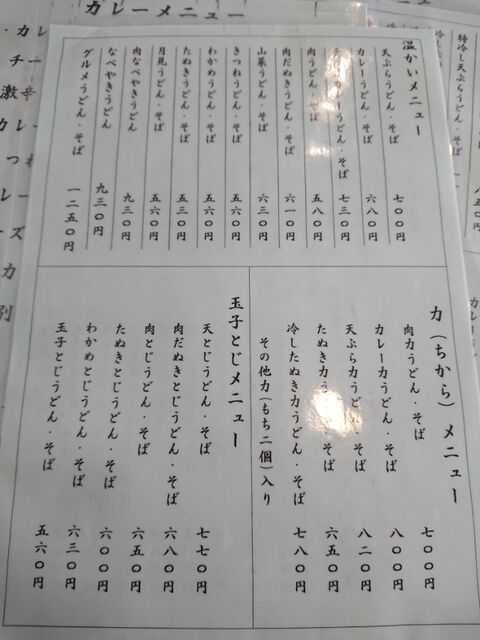 特冷し天ぷらうどん・そ
八五〇円
温かいメニュー
天ぷらうどん・そば 七〇〇円
カレーうどん・そば 六八〇円
カレーうどん・そば 七三〇円
肉うどん・そば 五八〇円
肉だぬきうどん・そば 六一〇円
山菜うどん・そば 六三〇円
きつねうどん・そば 五六〇円
わかめうどん・そば 五六〇円
たぬきうどん・そば 五三〇円
月見うどん・そば 五六〇円
肉なべやきうどん 九三〇円
なべやきうどん 九三〇円
グルメうどん・そば 一二五〇円
力(ちから)メニュー
肉力うどん・そば 七〇〇円
カレー力うどん・そば 八〇〇円
天ぷら力うどん・そば 八二〇円
たぬき力うどん・そば 六五〇円
冷したぬき力うどん・そば 七八〇円
その他力(もち二個)入り
玉子とじメニュー
天とじうどん・そば 七七〇円
肉だぬきとじうどん・そば 六八〇円
肉とじうどん・そば 六五〇円
たぬきとじうどん・そば 六〇〇円
わかめとじうどん・そば 六三〇円
玉子とじうどん・そば 五六〇円
カレーメニュー
・カレ
チー
激辛
カレ
つ
レー
ーズ
カ
別